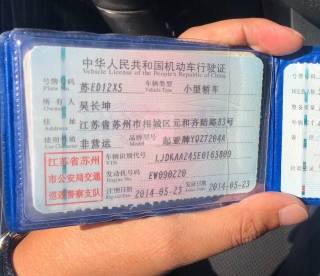 中华人民共和国机动车行驶证
Vehicle License of the People's Republic of China
号牌号码 苏ED12X5 车辆类型 小型轿车
Plate No. Vehicle Type
所有人 吴长坤
Owner
住址 江苏省苏州市相城区元和齐陆路83号
Address
使用性质 非营运 品牌型号 起亚牌YQZ7204A
Use Character Model
江苏省苏州
市公安局交通
巡逻警察支队
车辆识别代号 LJDKAA245E0163809
VIN
发动机号码 EW090220
Engine No.
注册日期 2014-05-23 发证日期 2014-05-23
Register Date Issue Date